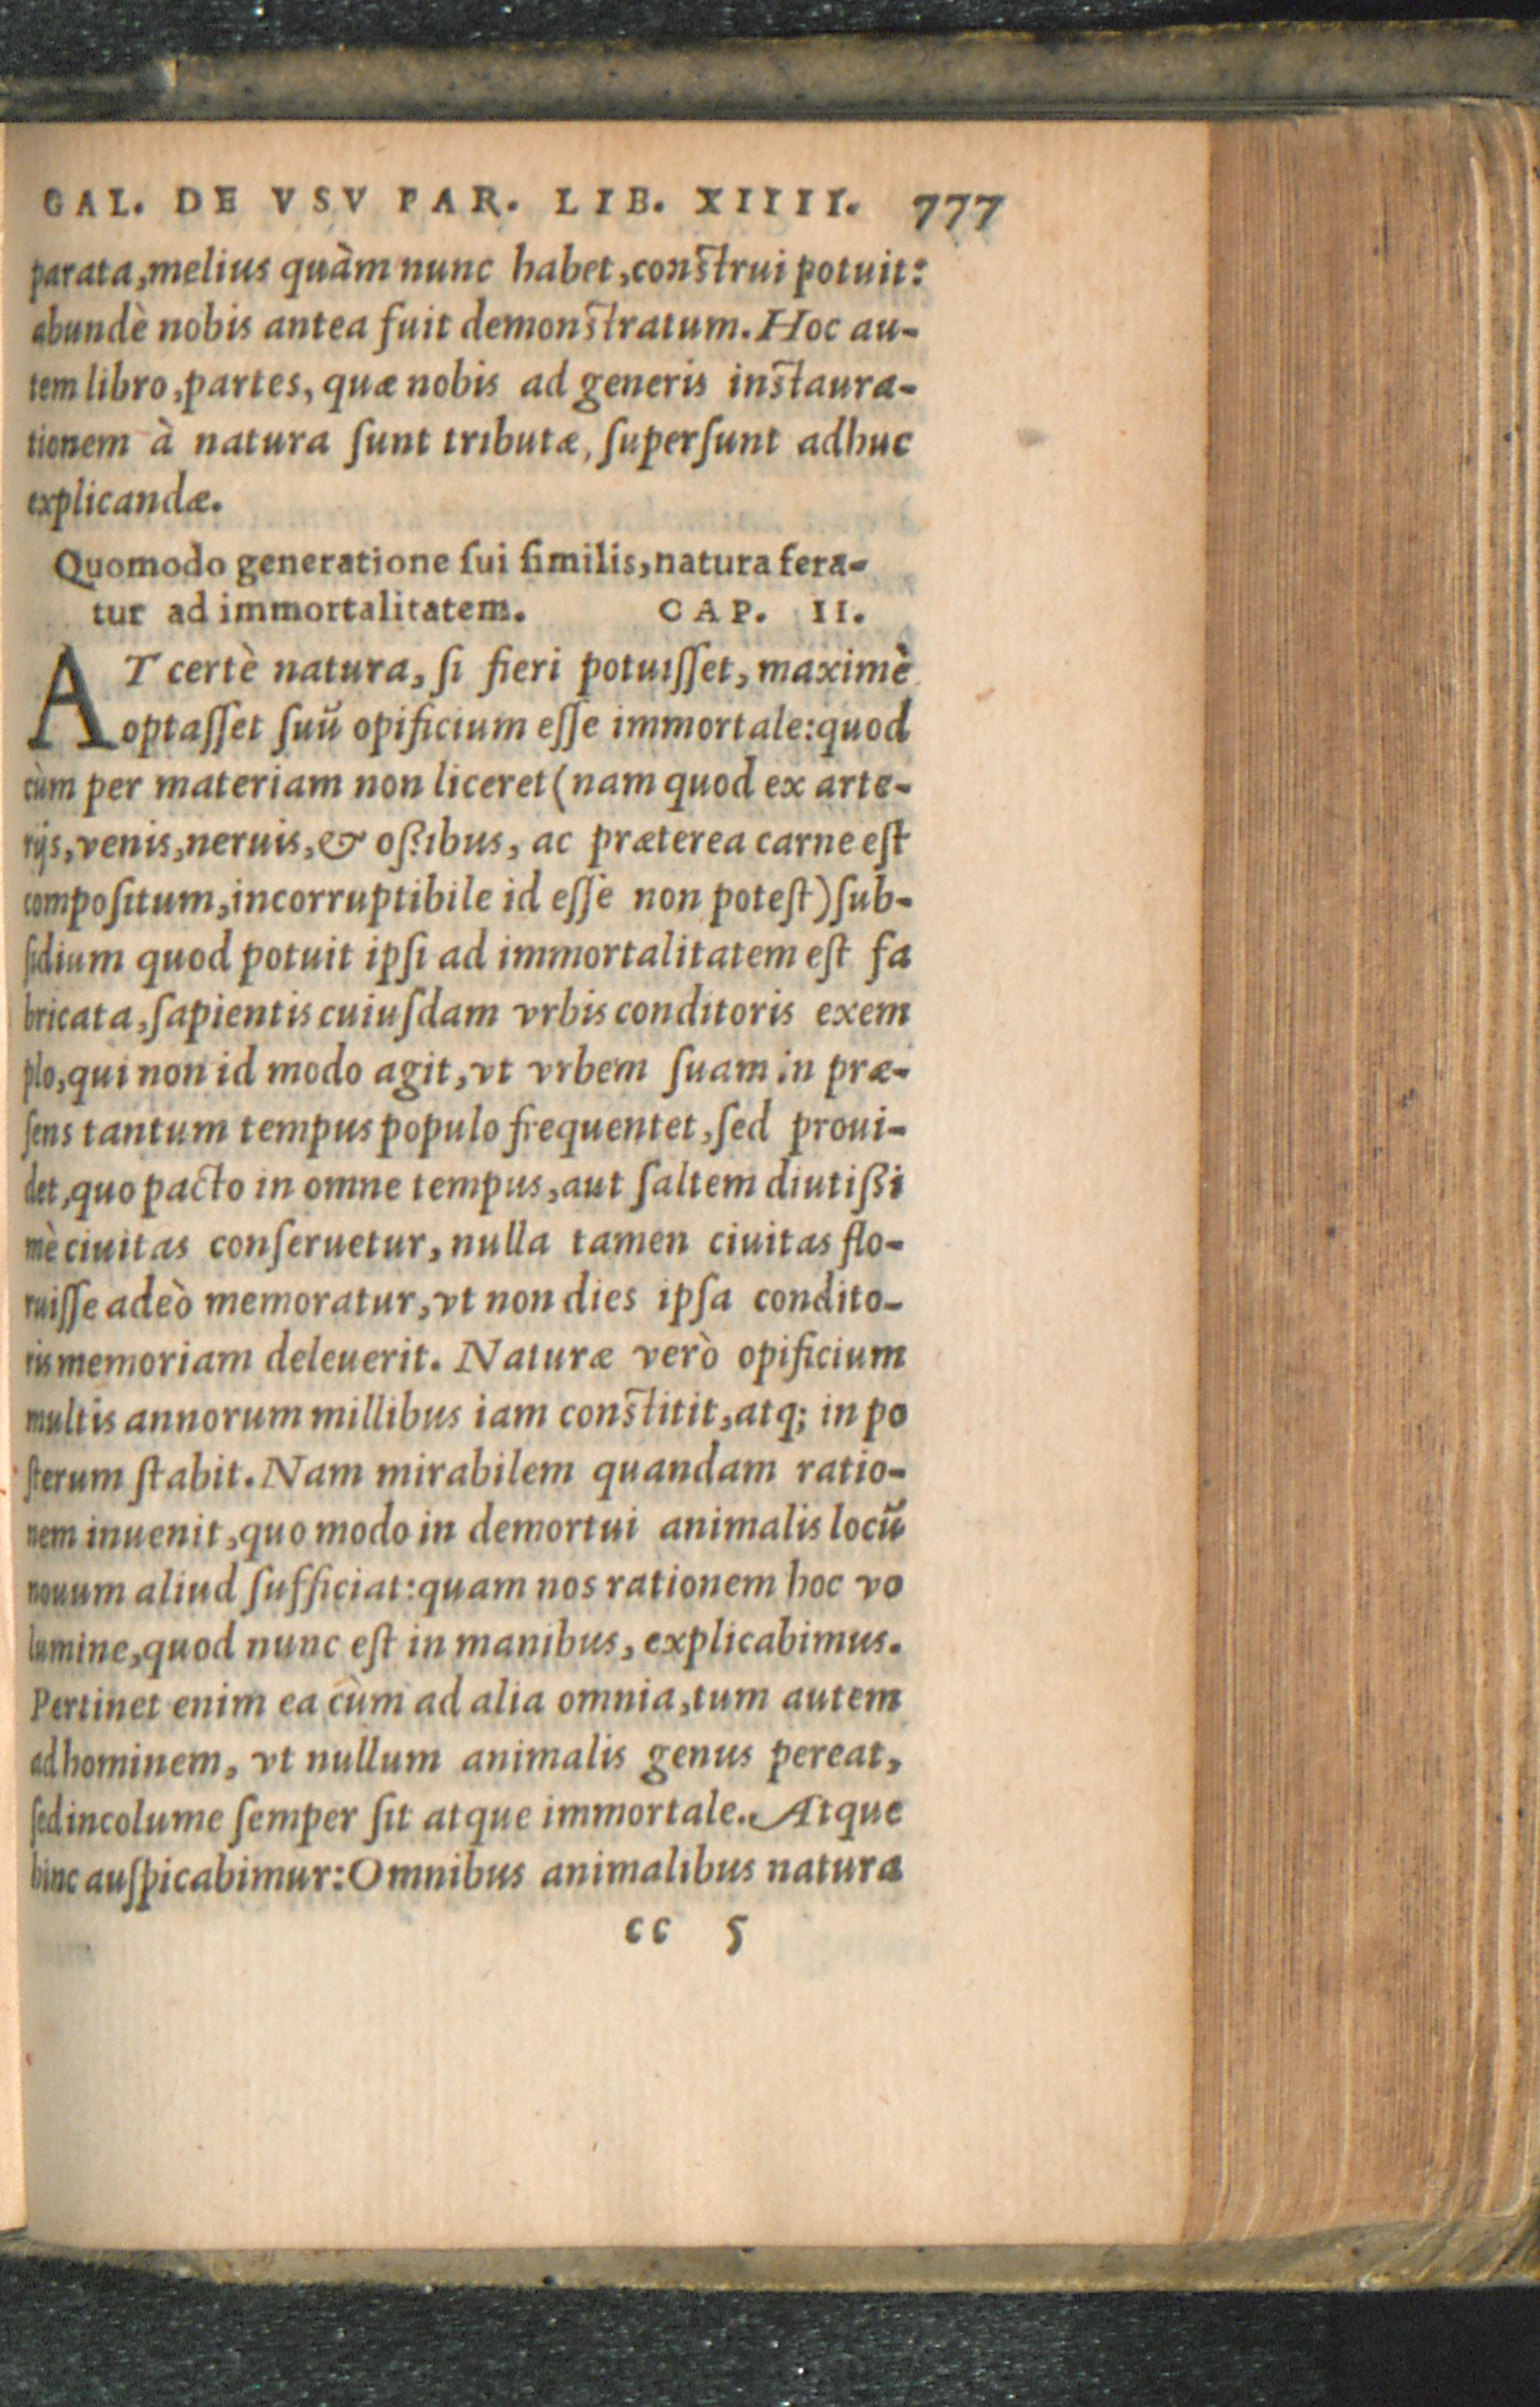 GAL. DE VSV PAR. LIB. XIIII. 777
parata, melius quàm nunc habet, construi potuit:
abundè nobis antea fuit demonstratum. Hoc au-
tem libro, partes, quæ nobis ad generis instaura-
tionem à natura ſunt tributæ, ſuperſunt adhuc
explicandæ.
Quomodo generatione ſui ſimilis, natura fera-
tur ad immortalitatem. CAP. II.
AT certè natura, ſi fieri potuiſſet, maximè
optaſſet ſuū opificium eſſe immortale: quod
cùm per materiam non liceret (nam quod ex arte-
rijs, venis, neruis, & oßibus, ac præterea carne eſt
compoſitum, incorruptibile id eſſe non poteſt) ſub-
ſidium quod potuit ipſi ad immortalitatem eſt fa
bricata, ſapientis cuiuſdam vrbis conditoris exem
plo, qui non id modo agit, vt vrbem ſuam in præ-
ſens tantum tempus populo frequentet, ſed proui-
det, quo pacto in omne tempus, aut ſaltem diutißi
mè ciuitas conſeruetur, nulla tamen ciuitas flo-
ruiſſe adeò memoratur, vt non dies ipſa condito-
ris memoriam deleuerit. Naturæ verò opificium
multis annorum millibus iam constitit, atq; in po
ſterum ſtabit. Nam mirabilem quandam ratio-
nem inuenit, quo modo in demortui animalis locū
nouum aliud ſufficiat: quam nos rationem hoc vo
lumine, quod nunc eſt in manibus, explicabimus.
Pertinet enim ea cùm ad alia omnia, tum autem
ad hominem, vt nullum animalis genus pereat,
ſed incolume ſemper ſit atque immortale. Atque
hinc auſpicabimur: Omnibus animalibus natura
cc 5